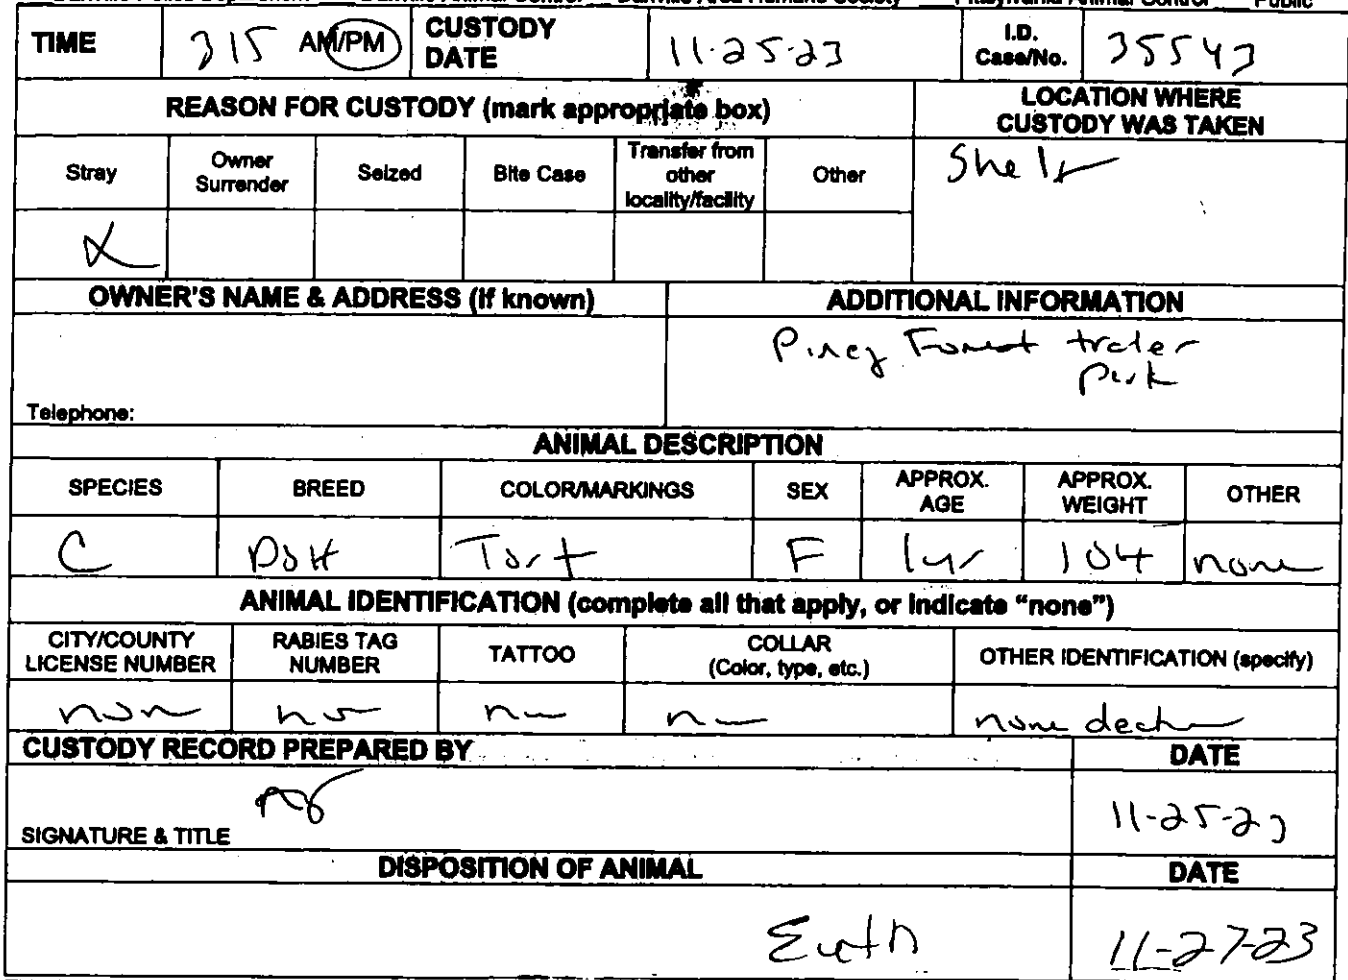 TIME 315 AM/PM CUSTODY DATE 11-25-23 I.D. Case/No. 35543
REASON FOR CUSTODY (mark appropriate box) LOCATION WHERE CUSTODY WAS TAKEN
Stray Owner Surrender Seized Bite Case Transfer from other locality/facility Other
X
OWNER'S NAME & ADDRESS (if known) ADDITIONAL INFORMATION
Piney Forest
park
Telephone:
ANIMAL DESCRIPTION
SPECIES BREED COLOR/MARKINGS SEX APPROX. AGE APPROX. WEIGHT OTHER
C DSH Tort F 1yr none
ANIMAL IDENTIFICATION (complete all that apply, or indicate "none")
CITY/COUNTY LICENSE NUMBER RABIES TAG NUMBER TATTOO COLLAR (Color, type, etc.) OTHER IDENTIFICATION (specify)
none
CUSTODY RECORD PREPARED BY DATE
11-25-23
SIGNATURE & TITLE
DISPOSITION OF ANIMAL DATE
Euth 11-27-23